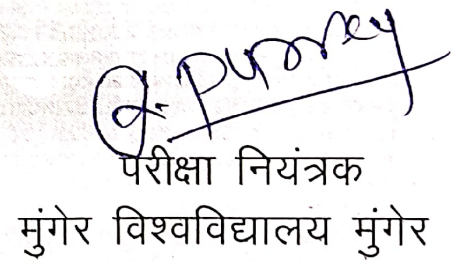 परीक्षा नियंत्रक
मुंगेर विश्वविद्यालय मुंगेर